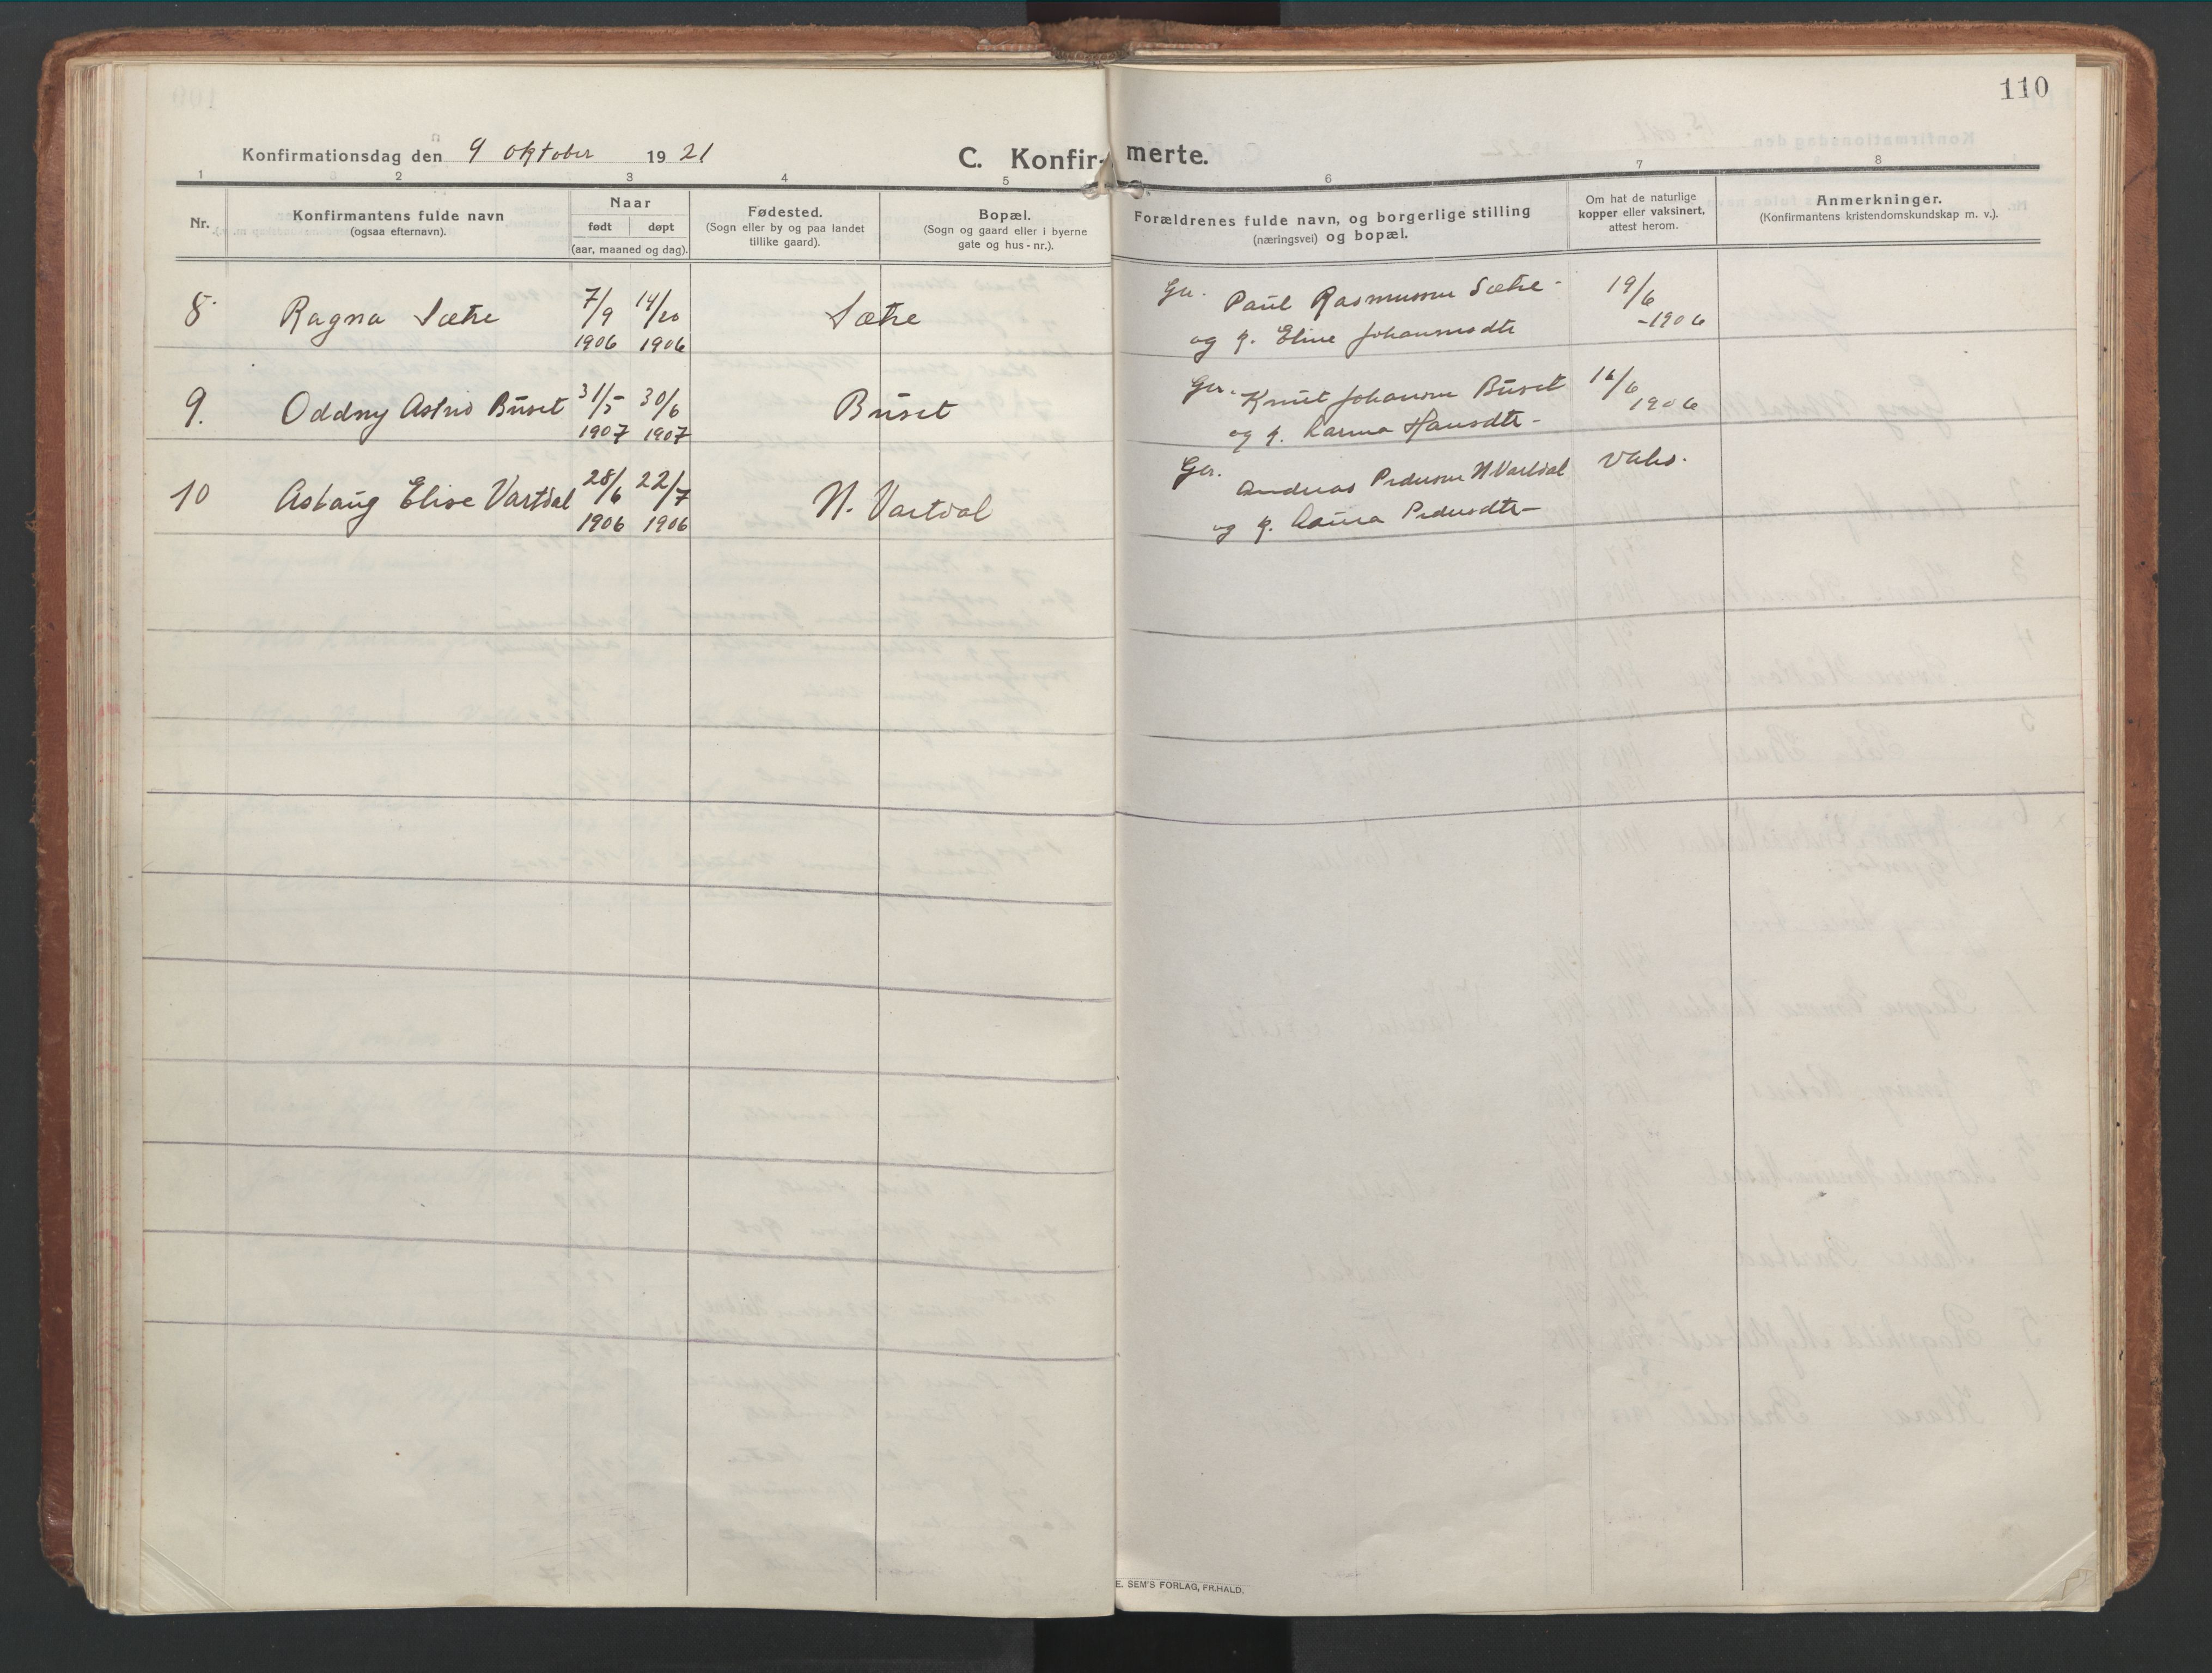 110
Konfirmationsdag den 9 oktober 1921
C. Konfir- merte.
1 2 3 4 5 6 7 8
Nr.
Konfirmantens fulde navn
(ogsaa efternavn).
Naar
født døpt
(aar, maaned og dag).
Fødested.
(Sogn eller by og paa landet
tillike gaard).
Bopæl.
(Sogn og gaard eller i byerne
gate og hus-nr.).
Forældrenes fulde navn, og borgerlige stilling
(næringsvei) og bopæl.
Om hat de naturlige
kopper eller vaksinert,
attest herom.
Anmerkninger.
(Konfirmantens kristendomskundskap m. v.).
8. Ragna Sætre 7/9 1906 14/10 1906 Sætre
Gr. Paul Rasmussen Sætre -
og h. Eline Johannesdtr
19/6
-1906
9. Oddny Astrid Buset 31/5 1907 30/6 1907 Buset
Gr. Knut Johansen Buset
og h. Karina Hansdtr -
16/6
1906
10 Aslaug Elise Vartdal 28/6 1906 22/7 1906 N. Vartdal
Gr. Andreas Pedersen N. Vartdal
og h. Laura Pedersdtr -
Vaks.
E. SEM'S FORLAG, FR.HALD.